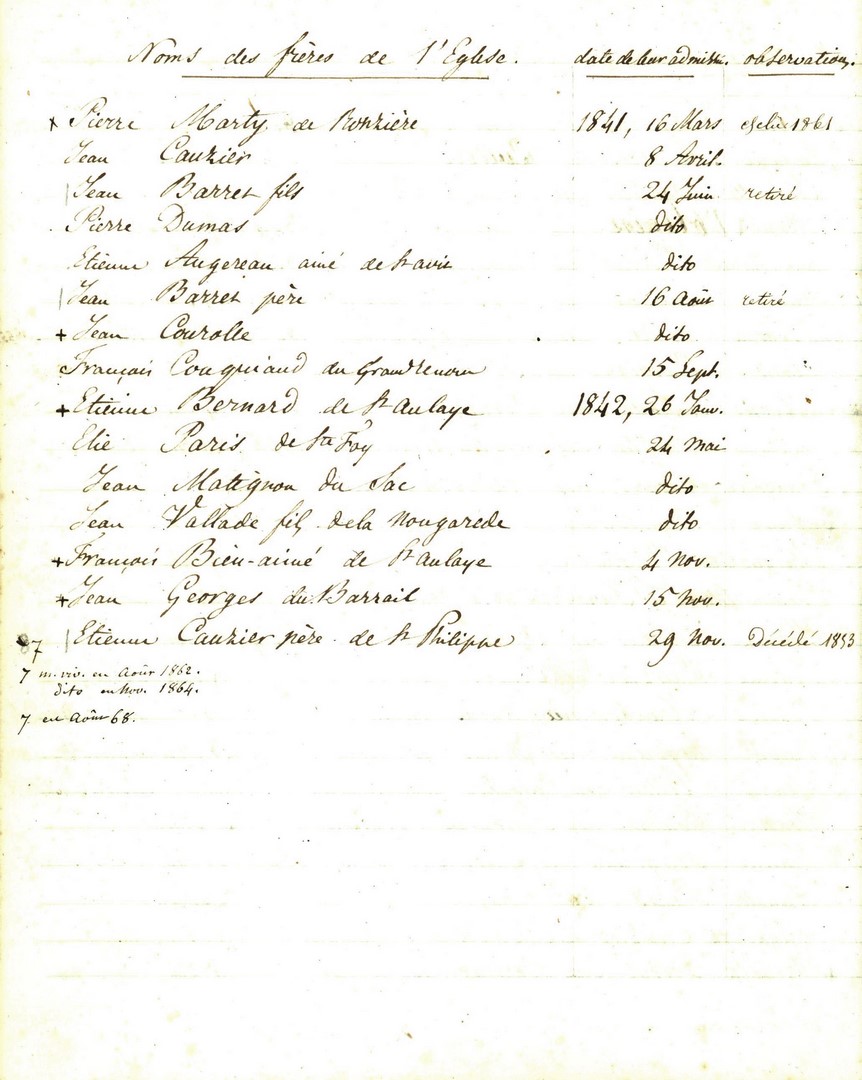 Noms des frères de l'Eglise. date de leur admiss. observations.
+ Pierre Marty de Ronzière 1841, 16 Mars 1861
Jean Cauzier 8 Avril.
Jean Barret fils 24 Juin retiré
Pierre Dumas dito
Etienne Augereau ainé de St avit dito
Jean Barret père 16 Août retiré
+ Jean Courolle dito
François Couquiaud du Grand renom 15 Sept.
+ Etienne Bernard de St Aulaye 1842, 26 Janv.
Elie Paris de Ste Foy 24 mai
Jean Matignon du Sac dito
Jean Vallade fils de la nougarede dito
+ François Bien-aimé de St aulaye 4 nov.
+ Jean Georges du Barrail 15 nov.
7 Etienne Cauzier père de St Philippe 29 nov. Décédé 1853
7 m. viv. en Août 1862.
dito en Nov. 1864.
7 en Août 68.